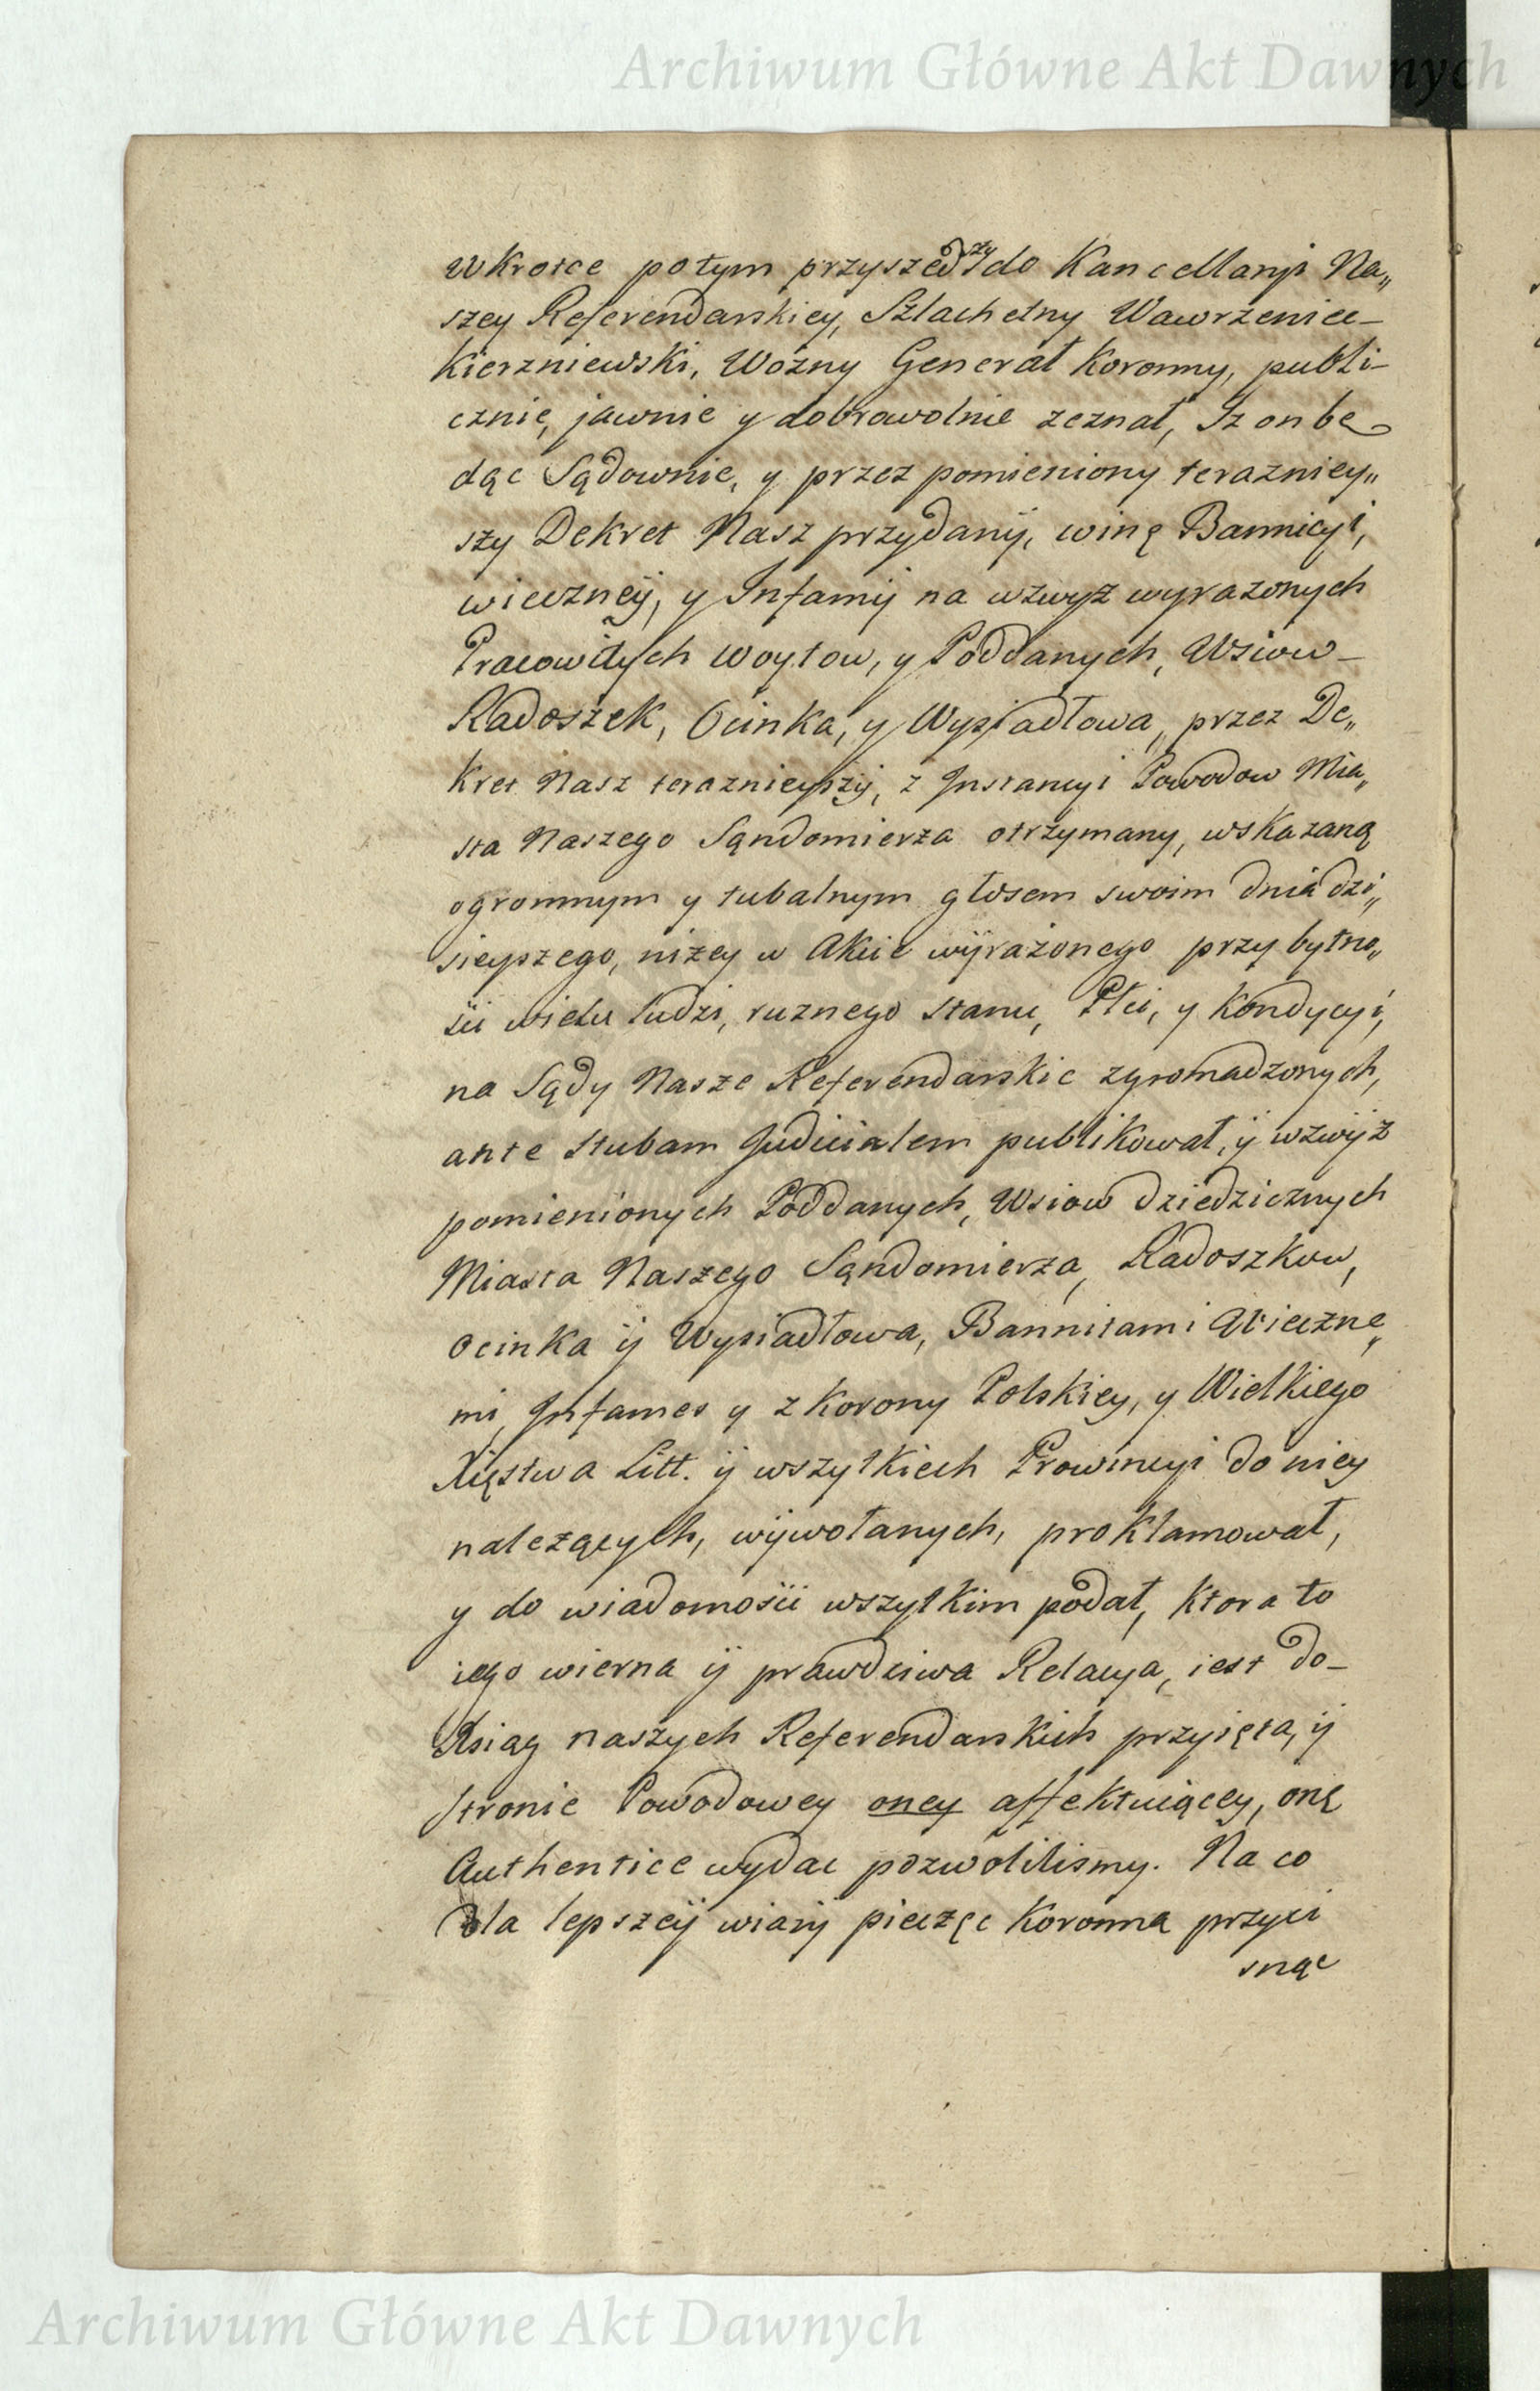 Archiwum Główne Akt Dawnych
wkrotce potym przyszedszy do Kancellaryi Na„
szey Referendarskiey, Szlachetny Wawrzeniec
Kierzniewski, Wozny Generał Koronny, publi-
cznie, jawnie y dobrowolnie zeznał, Iz on be
dąc Sądownie, y przez pomieniony terazniey„
szy Dekret Nasz przydanÿ, winę Bannicyi,
wiecznęÿ, y Infamÿ na wzwyż wyrazonych
Pracowitych Woytow, y Poddanych, Wsiow-
Radoszek, Ocinka, y Wysiadłowa, przez De„
kret Nasz teraznieyszÿ, z Instancyi Powodow Mia„
sta Naszego Sąndomierza otrzymany, wskazaną
ogromnym y tubalnym głosem swoim dnia dzi„
sieyszego, niżey w Akcie wÿrażonego przy bytno„
ści wielu ludzi, ruznego stanu, Płci, y Kondycyi,
na Sądy Nasze Referendarskie zgromadzonych,
ante Stubam Judicialem publikował, ÿ wzwÿż
pomienionych Poddanych, Wsiow dziedzicznych
Miasta Naszego Sąndomierza, Radoszkow,
Ocinka ÿ Wysiadłowa, Bannitami Wieczne„
mi, Infames y z Korony Polskiey, y Wielkiego
Xięstwa Litt. ÿ wszytkich Prowincyi do niey
nalezących, wÿwołanych, proklamował,
y do wiadomości wszytkim podał, ktora to
iego wierna ÿ prawdziwa Relacya, iest do-
Ksiąg naszych Referendarskich przyięta, ÿ
stronie Powodowey oney affektuiącey, onę
Authentice wydac pozwolilismy. Na co
dla lepszeÿ wiarÿ pieczęc Koronna przyci
snąc
Archiwum Główne Akt Dawnych